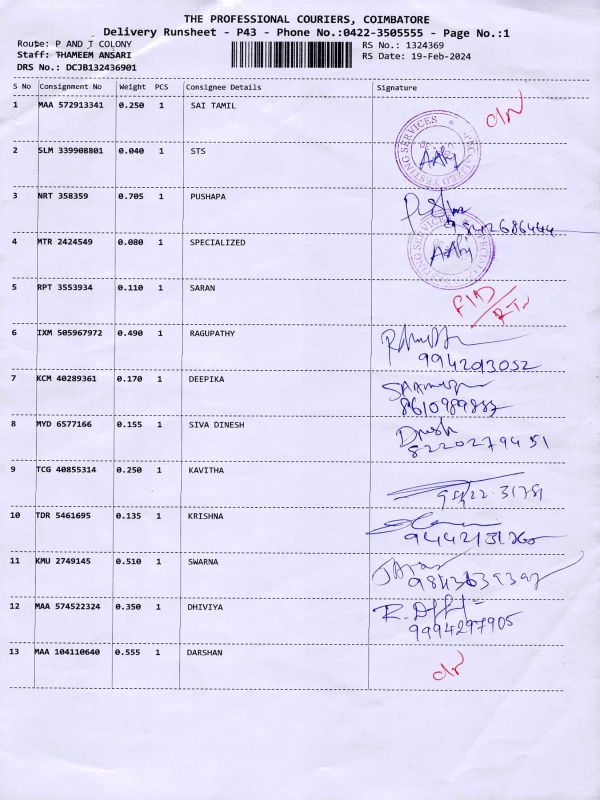 THE PROFESSIONAL COURIERS, COIMBATORE
Delivery Runsheet - P43 - Phone No.:0422-3505555 - Page No.:1
Route: P AND T COLONY
RS No.: 1324369
Staff: THAMEEM ANSARI
RS Date: 19-Feb-2024
DRS No.: DCJB132436901
S No Consignment No Weight PCS Consignee Details Signature
1 MAA 572913341 0.250 1 SAI TAMIL
2 SLM 339908801 0.040 1 STS
3 NRT 358359 0.705 1 PUSHAPA
9842686444
4 MTR 2424549 0.080 1 SPECIALIZED
5 RPT 3553934 0.110 1 SARAN
6 IXM 505967972 0.490 1 RAGUPATHY
9942013052
7 KCM 40289361 0.170 1 DEEPIKA
8 MYD 6577166 0.155 1 SIVA DINESH
Dinesh
8220279451
9 TCG 40855314 0.250 1 KAVITHA
10 TDR 5461695 0.135 1 KRISHNA
11 KMU 2749145 0.510 1 SWARNA
12 MAA 574522324 0.350 1 DHIVIYA
9994297905
13 MAA 104110640 0.555 1 DARSHAN